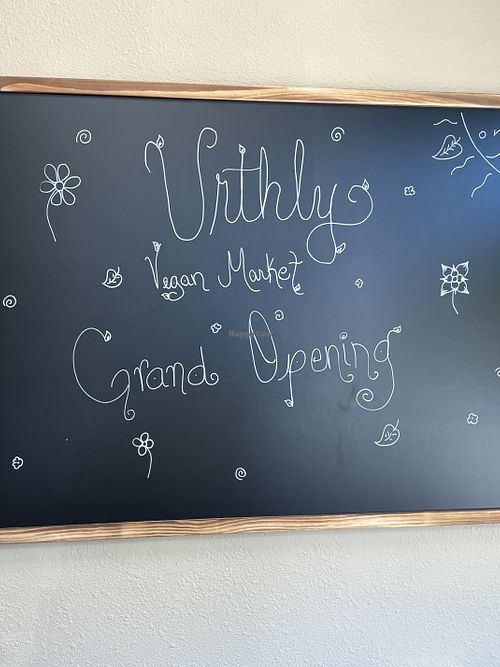 Urthly
Vegan Market
Grand Opening
HappyCow